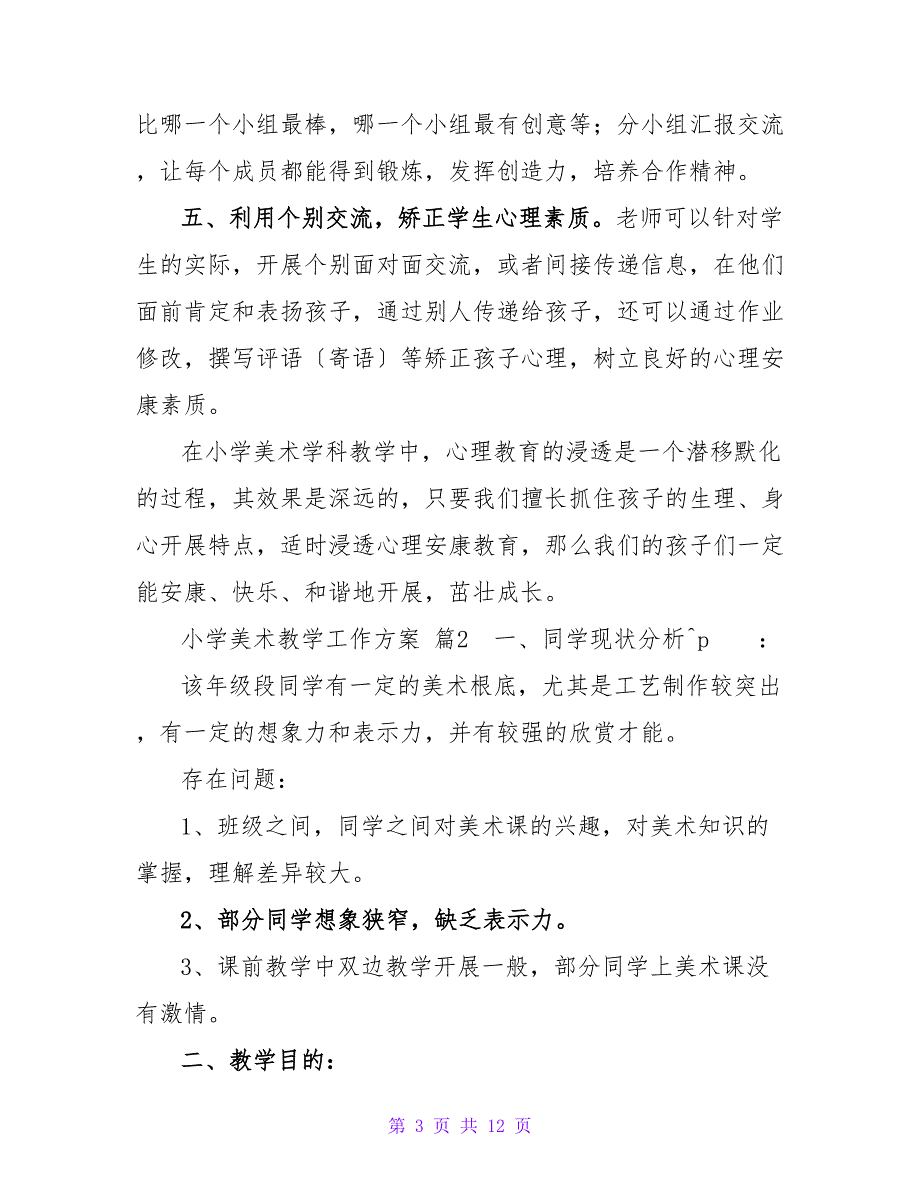 比哪一个小组最棒，哪一个小组最有创意等；分小组汇报交流
，让每个成员都能得到锻炼，发挥创造力，培养合作精神。
五、利用个别交流，矫正学生心理素质。老师可以针对学
生的实际，开展个别面对面交流，或者间接传递信息，在他们
面前肯定和表扬孩子，通过别人传递给孩子，还可以通过作业
修改，撰写评语〔寄语〕等矫正孩子心理，树立良好的心理安
康素质。
在小学美术学科教学中，心理教育的浸透是一个潜移默化
的过程，其效果是深远的，只要我们擅长抓住孩子的生理、身
心开展特点，适时浸透心理安康教育，那么我们的孩子们一定
能安康、快乐、和谐地开展，茁壮成长。
小学美术教学工作方案 篇2 一、同学现状分析^p ：
该年级段同学有一定的美术根底，尤其是工艺制作较突出
，有一定的想象力和表示力，并有较强的欣赏才能。
存在问题：
1、班级之间，同学之间对美术课的兴趣，对美术知识的
掌握，理解差异较大。
2、部分同学想象狭窄，缺乏表示力。
3、课前教学中双边教学开展一般，部分同学上美术课没
有激情。
二、教学目的：
第 3 页 共 12 页